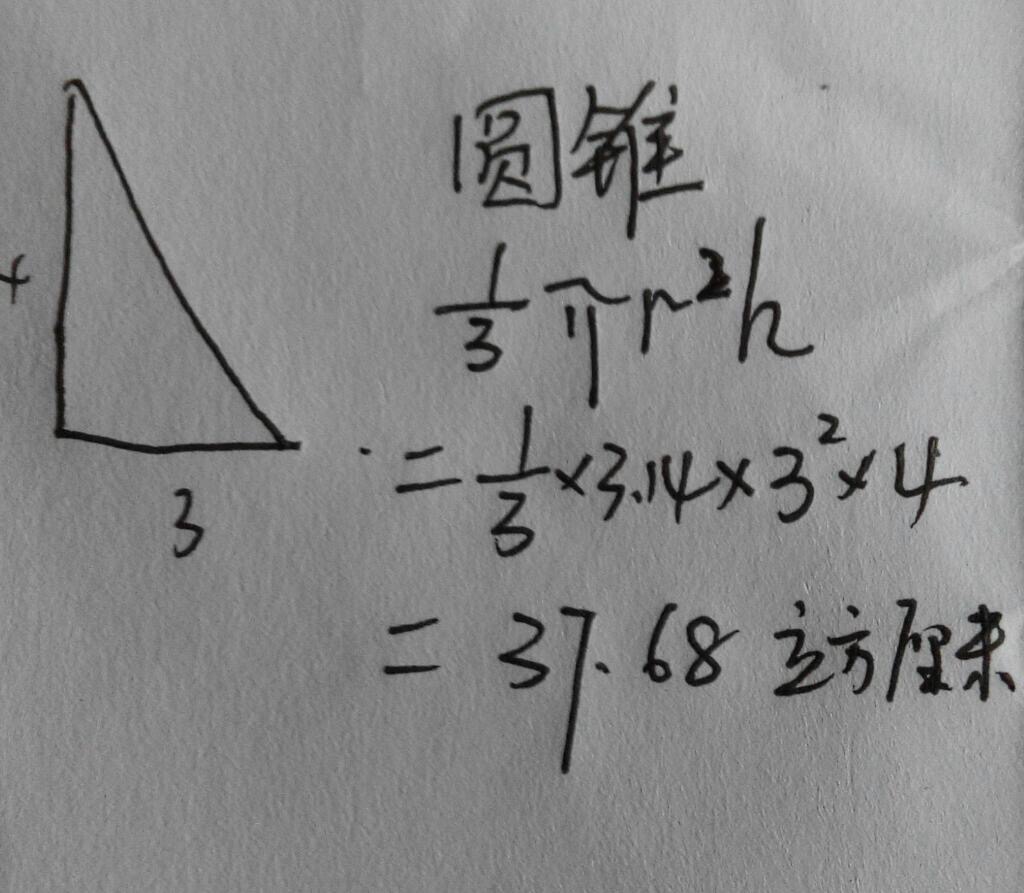 圆锥
1/3 πr²h
4
= 1/3 × 3.14 × 3² × 4
3
= 37.68 立方厘米